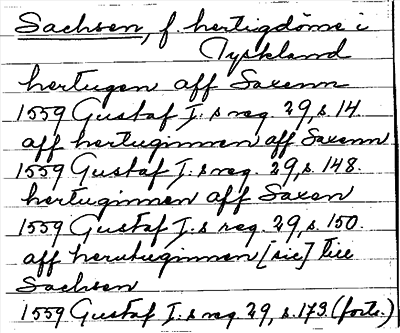 Sachsen, f. hertigdöme i
Tyskland
hertugen aff Saxenn
1559 Gustaf I:s reg. 29, s. 14.
aff hertuginnen aff Saxenn
1559 Gustaf I:s reg. 29, s. 148.
hertuginnen aff Saxen
1559 Gustaf I:s reg. 29, s. 150.
aff herutuginnen [sic] till
Sachsen
1559 Gustaf I:s reg. 29, s. 173. (forts.)